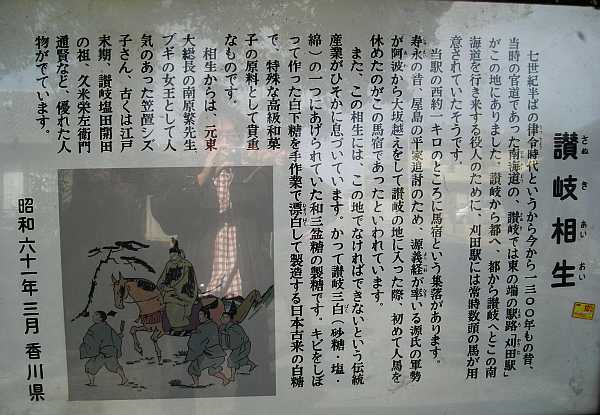 讃岐相生
さぬきあいおい
七世紀半ばの律令時代というから今から一三〇〇年もの昔、
当時の官道であった南海道の、讃岐では東の端の駅路「刈田駅」
がこの地にありました。讃岐から都へ、都から讃岐へとこの南
海道を行き来する役人のために、刈田駅には常時数頭の馬が用
意されていたそうです。
当駅の西約一キロのところに馬宿という集落があります。
寿永の昔、屋島の平家追討のため、源義経が率いる源氏の軍勢
が阿波から大坂越えをして讃岐の地に入った際、初めて人馬を
休めたのがこの馬宿であったといわれています。
また、この相生には、この地でなければできないという伝統
産業がひそかに息づいています。かって讃岐三白（砂糖・塩・
綿）の一つにあげられていた和三盆糖の製糖です。キビをしぼ
って作った白下糖を手作業で漂白して製造する日本古来の白糖
で、特殊な高級和菓
子の原料として貴重
なものです。
相生からは、元東
大総長の南原繁先生、
ブギの女王として人
気のあった笠置シズ
子さん、古くは江戸
末期、讃岐塩田開田
の祖、久米栄左衛門
通賢など、優れた人
物がでています。
昭和六十一年三月 香川県